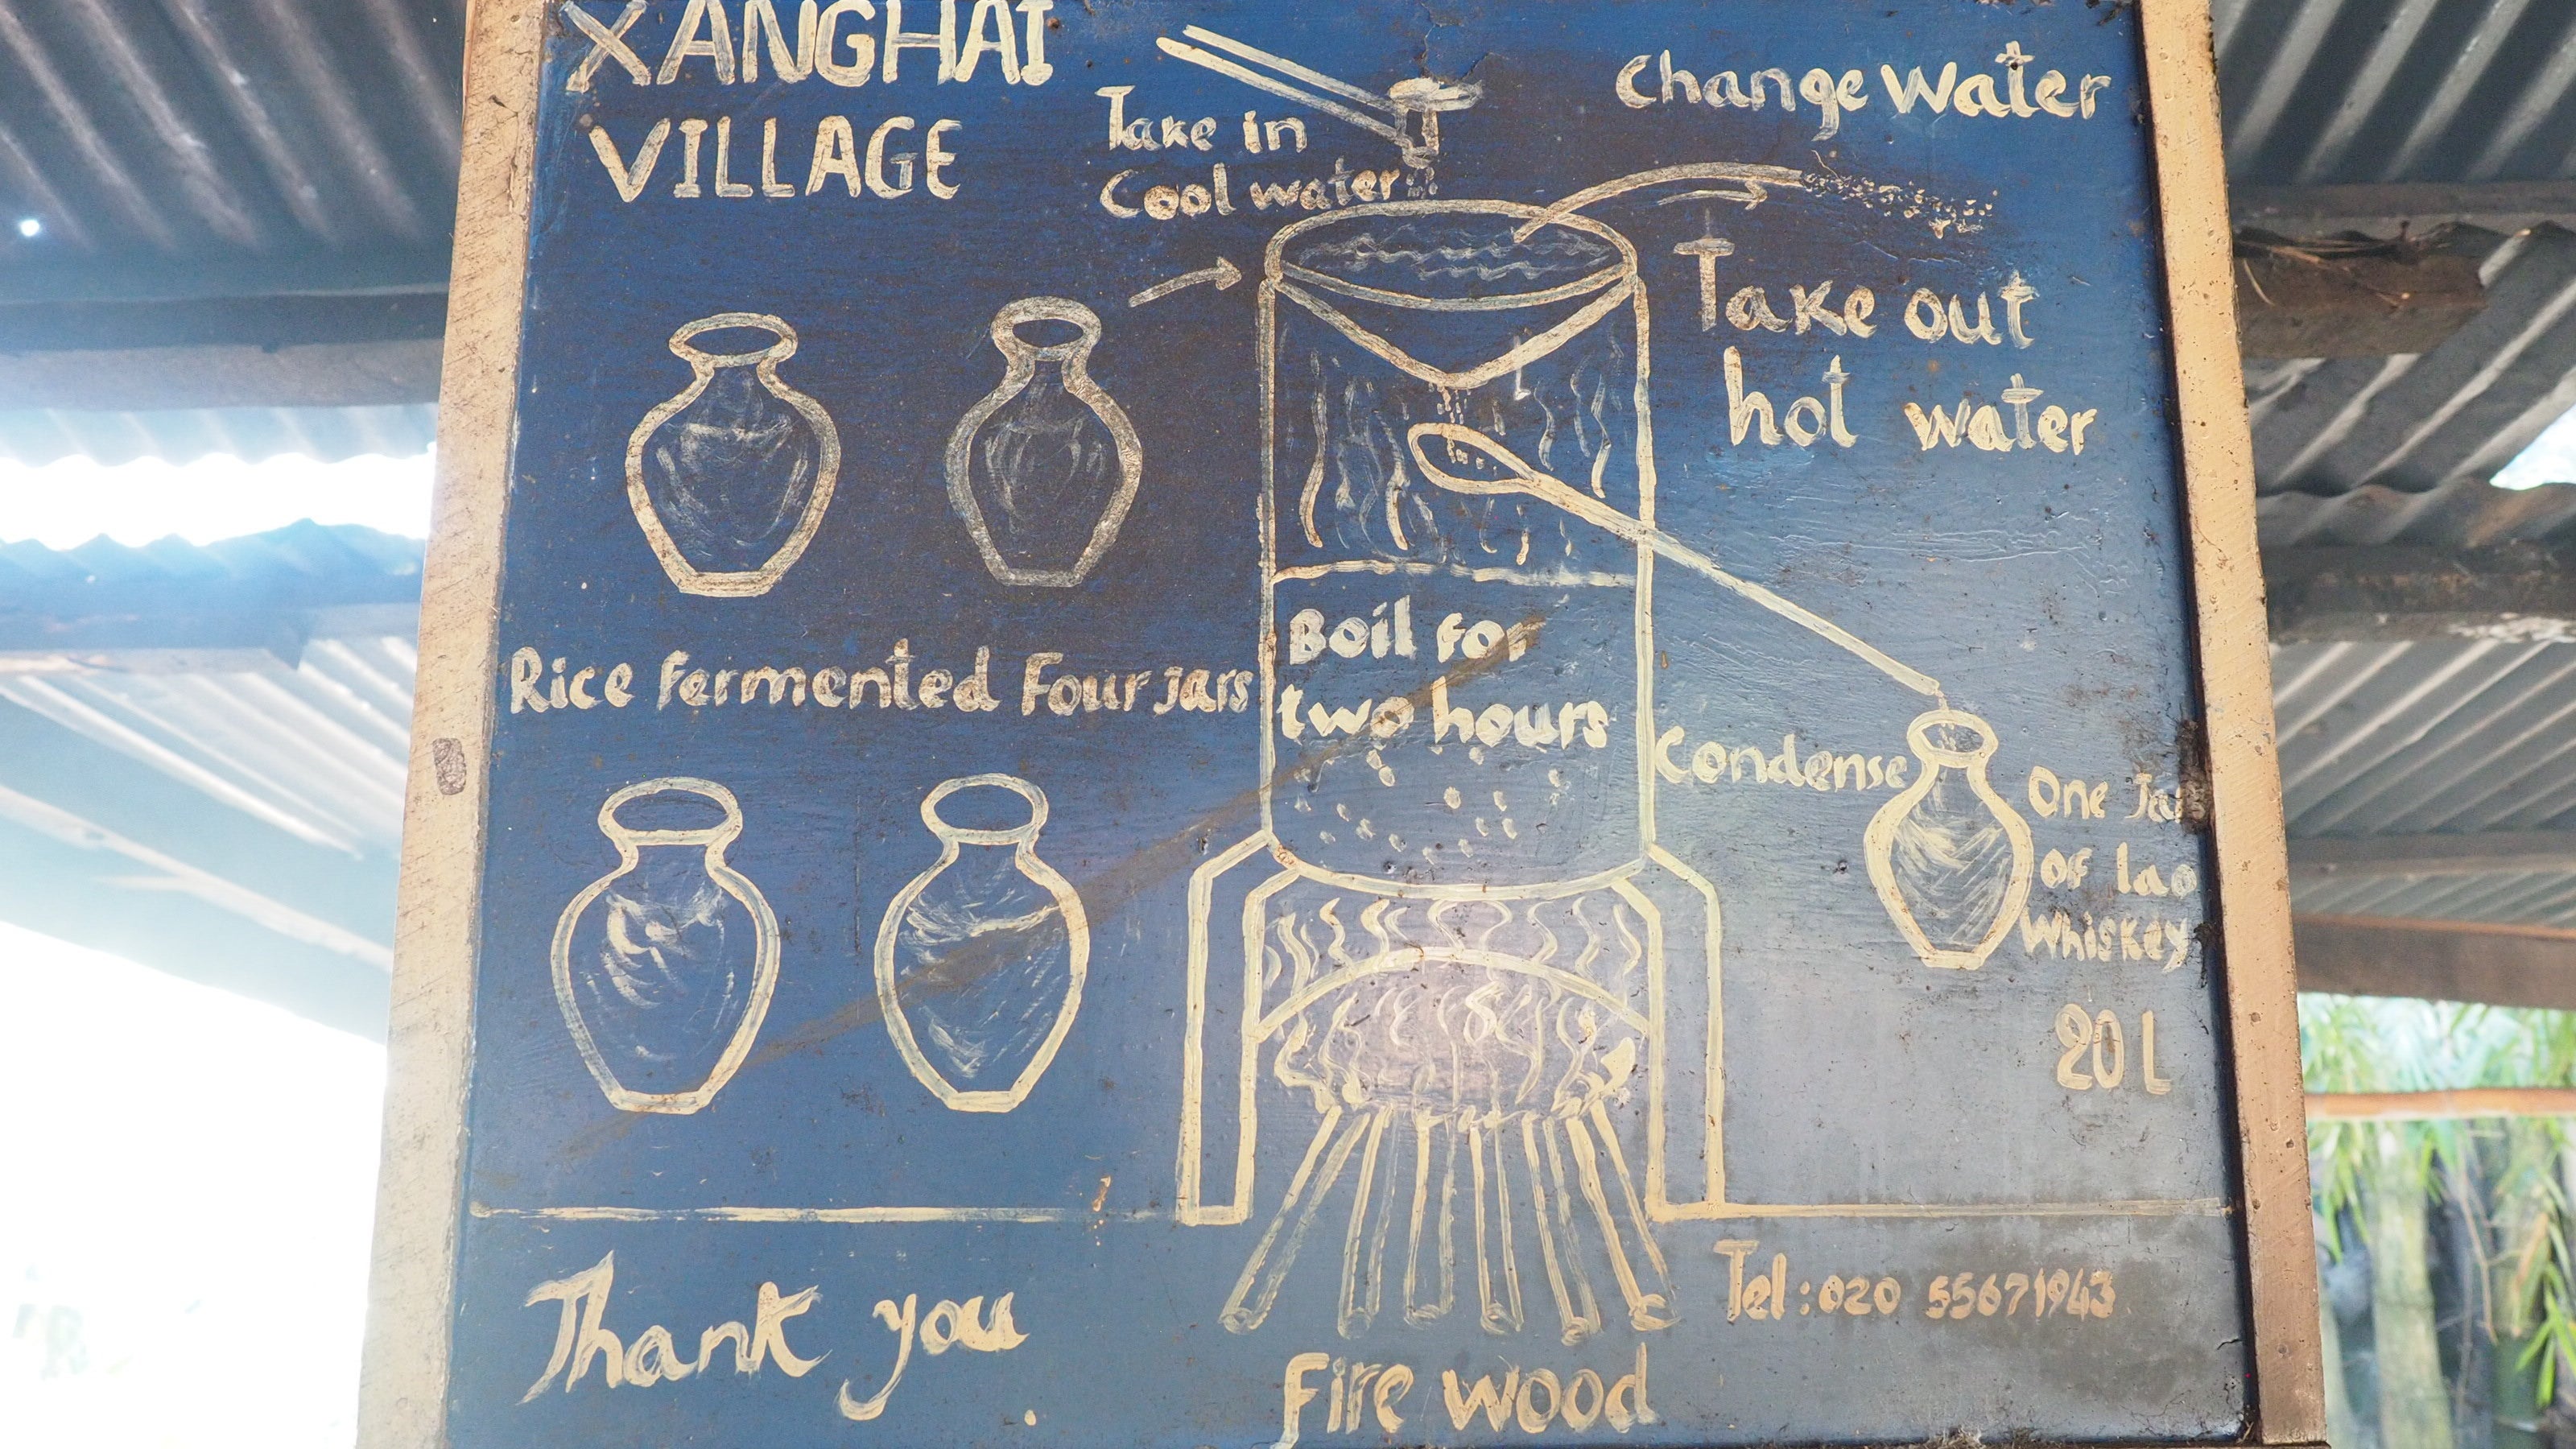 XANGHAI
VILLAGE
Take in
Cool water
Change Water
Take out
hot water
Rice fermented Four jars
Boil for
two hours
Condense
One Jar
of lao
Whiskey
20 L
Thank you
Fire wood
Tel : 020 55671943